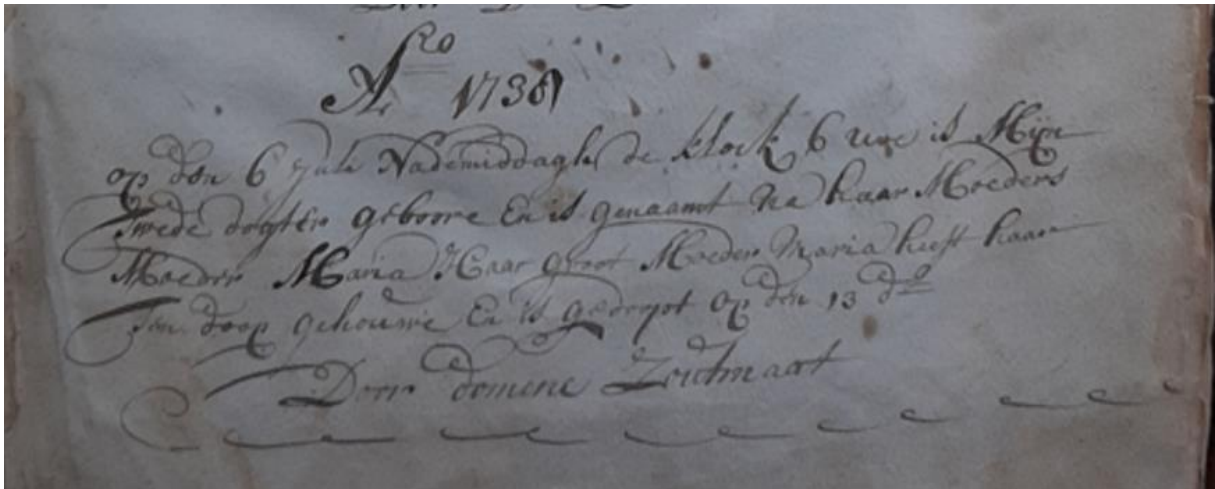 A͞o 1738
op den 6 July Nademiddaghs de klock 6 ure is Mijn
Twede dogter geboore En is genaamt Na haar Moeders
Moeder Maria Haar groot Moeder Maria heeft haar
Ten doop gehouwe En is gedoopt op den 13 do
Door domene Zoutmaat